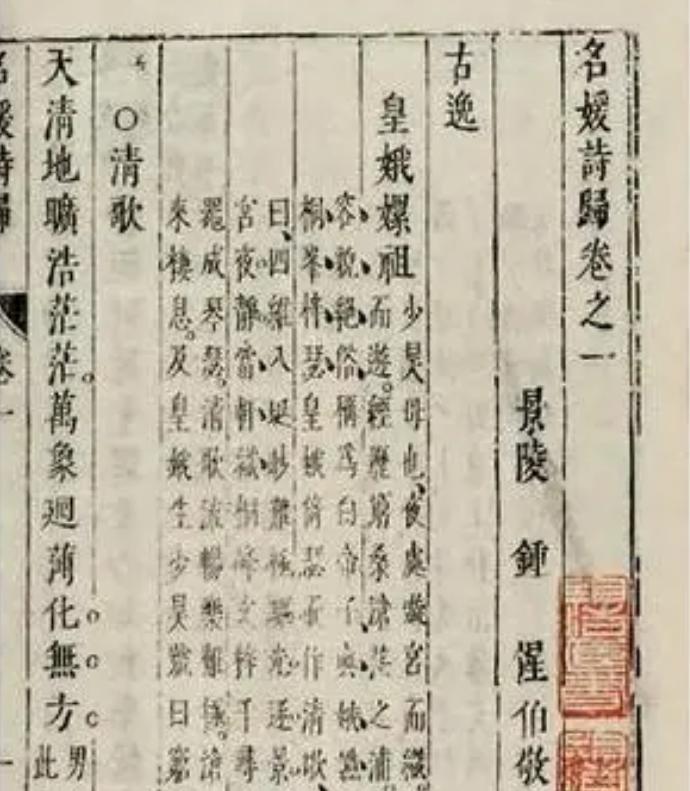 名媛詩歸卷之一
景陵 鍾 惺伯敬
古逸
皇娥嫘祖
少昊母也、夜處璇宮而織
而遊。經歷窮桑滄茫之浦
容貌絕俗稱爲白帝子與娥讌
桐峯梓瑟皇娥倚瑟而作清歌
曰、四維八埏眇難極驅光逐景
宮夜靜當軒織桐峰文梓千尋
成琴瑟。清歌流暢樂難極。滄
來棲息。及皇娥生少昊號曰窮
○清歌
天清地曠浩茫茫。萬象迴薄化無方
男
此